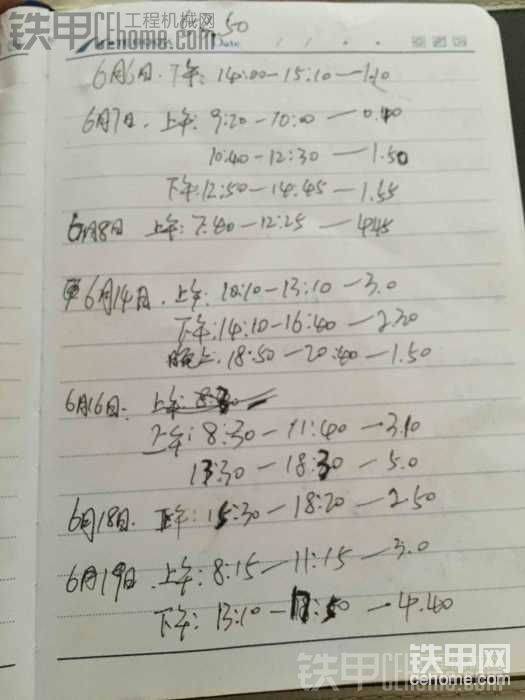 铁甲 工程机械网
cehome.com
50
Date
6月6日. 下午: 14:00-15:10-1.10
6月7日. 上午: 9:20-10:00-0.40
10:40-12:30-1.50
下午:12:50-14:45-1.55
6月8日 上午: 7:40-12:25-4.45
6月14日. 上午: 10:10-13:10-3.0
下午:14:10-16:40-2.30
晚上:18:50-20:40-1.50
6月16日: 上午: 8:30
上午: 8:30-11:40-3.10
13:30-18:30-5.0
6月18日. 下午: 15:30-18:20-2.50
6月19日. 上午: 8:15-11:15-3.0
下午: 13:10-17:50-4.40
铁甲网
cehome.com